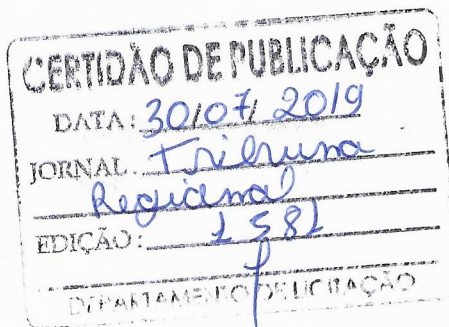 CERTIDÃO DE PUBLICAÇÃO
DATA: 30/07/2019
JORNAL: Tribuna
Regional
EDIÇÃO: 1581
DEPARTAMENTO DE LICITAÇÃO